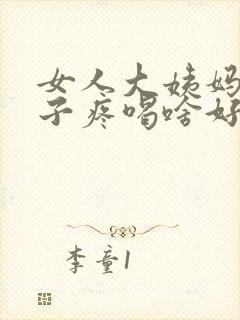 女人大姨妈
子疼喝啥好
李童1